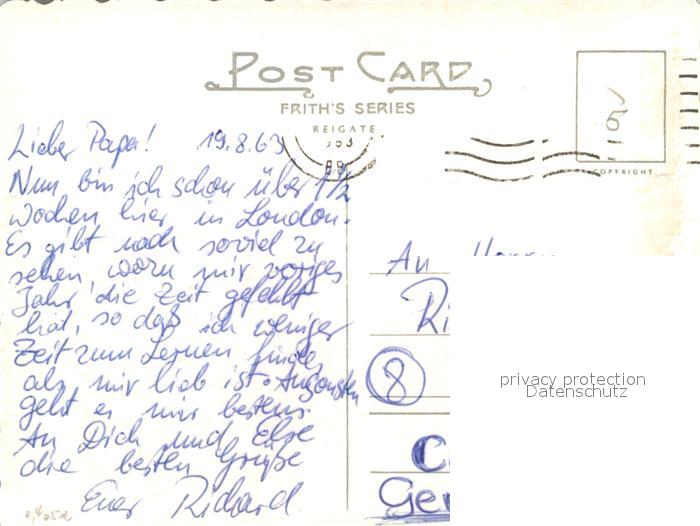 POST CARD
FRITH'S SERIES
REIGATE
COPYRIGHT
Lieber Papa! 19.8.63
Nun bin ich schon über 1 1/2
Wochen hier in London.
Es gibt noch soviel zu
sehen wozu mir voriges
Jahr die Zeit gefehlt
hat, so daß ich weniger
Zeit zum Lernen finde,
als mir lieb ist. Ansonsten
geht es mir bestens.
An Dich und Else
die besten Grüße
Euer Richard
An Herrn
Ri
8
Ger
privacy protection
Datenschutz